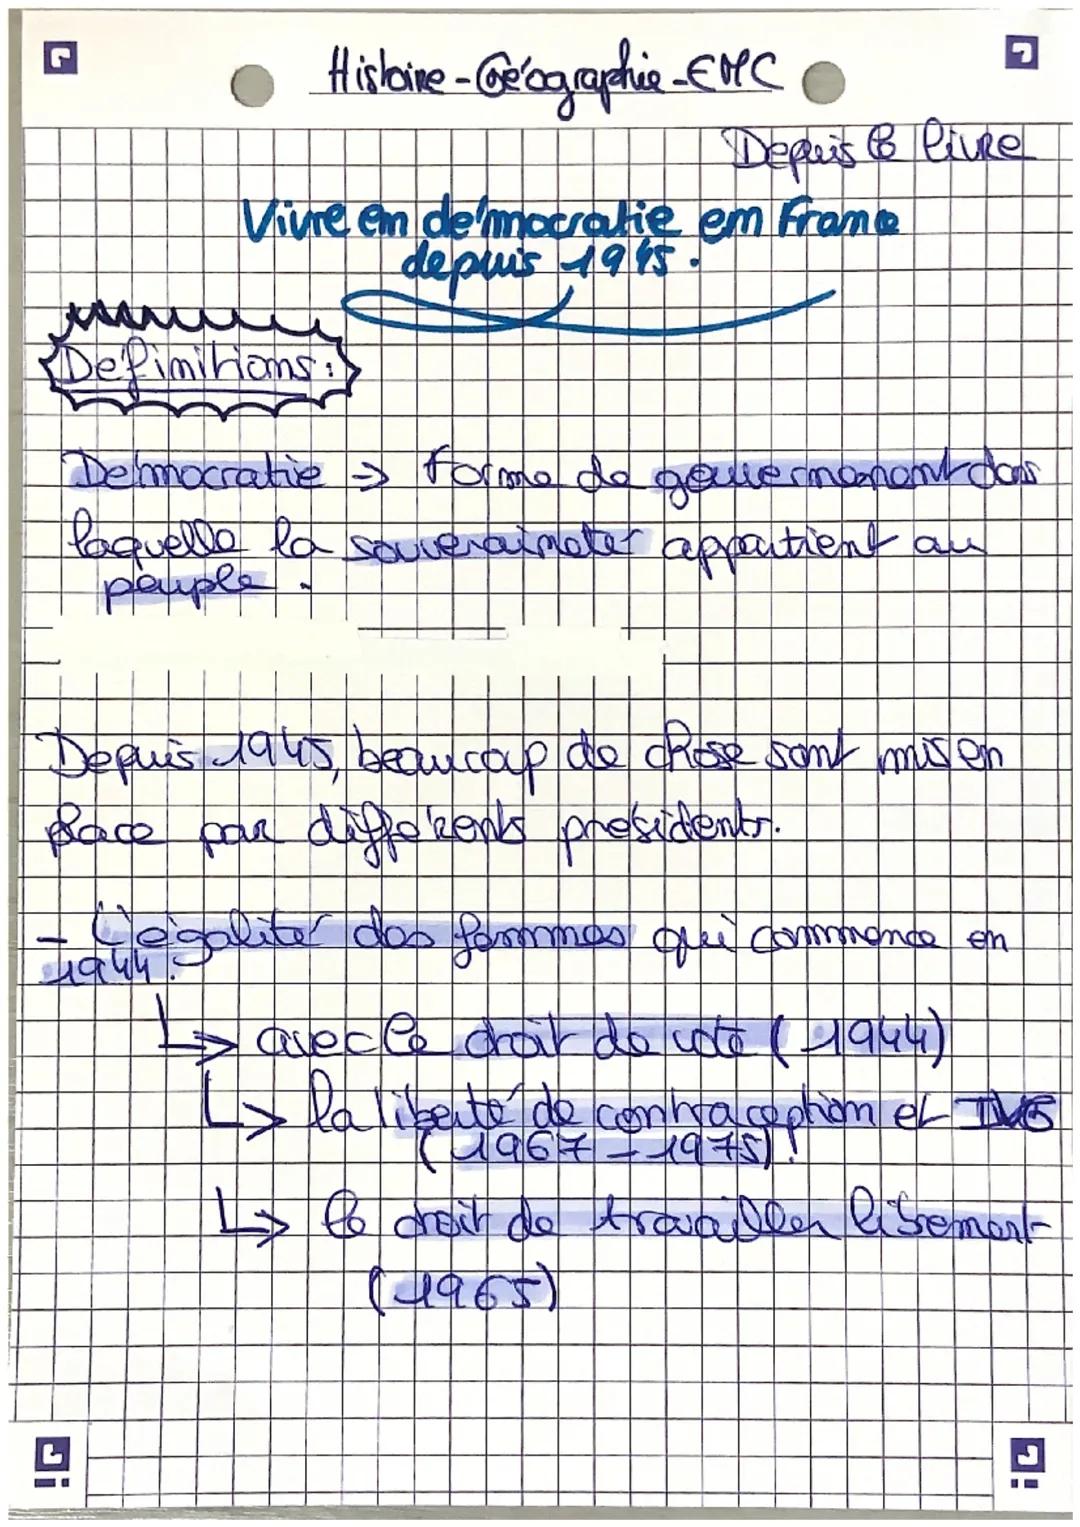 Histoire-Géographie-EMC
Depuis le livre
Vivre en démocratie en France
depuis 1945.
Définitions :
Démocratie → forme de gouvernement dans
laquelle la souveraineté appartient au
peuple.
Depuis 1945, beaucoup de chose sont mis en
place par différents présidents.
- L'égalité des femmes qui commence en
1944.
↳ avec le droit de vote (1944)
↳ la liberté de contraception et IVG
(1967-1975)!
↳ le droit de travailler librement
(1965)